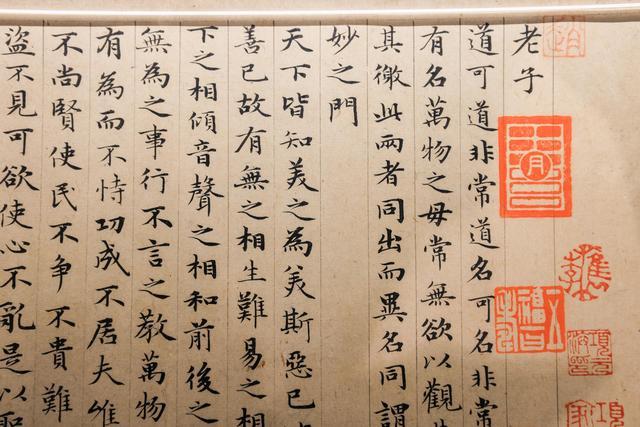 老子
道可道非常道名可名非常
有名萬物之母常無欲以觀其
其徼此兩者同出而異名同謂
妙之門
天下皆知美之為美斯惡已
善已故有無之相生難易之相
下之相傾音聲之相和前後之
無為之事行不言之教萬物
有為而不恃功成不居夫唯
不尚賢使民不争不貴難
盜不見可欲使心不亂是以聖